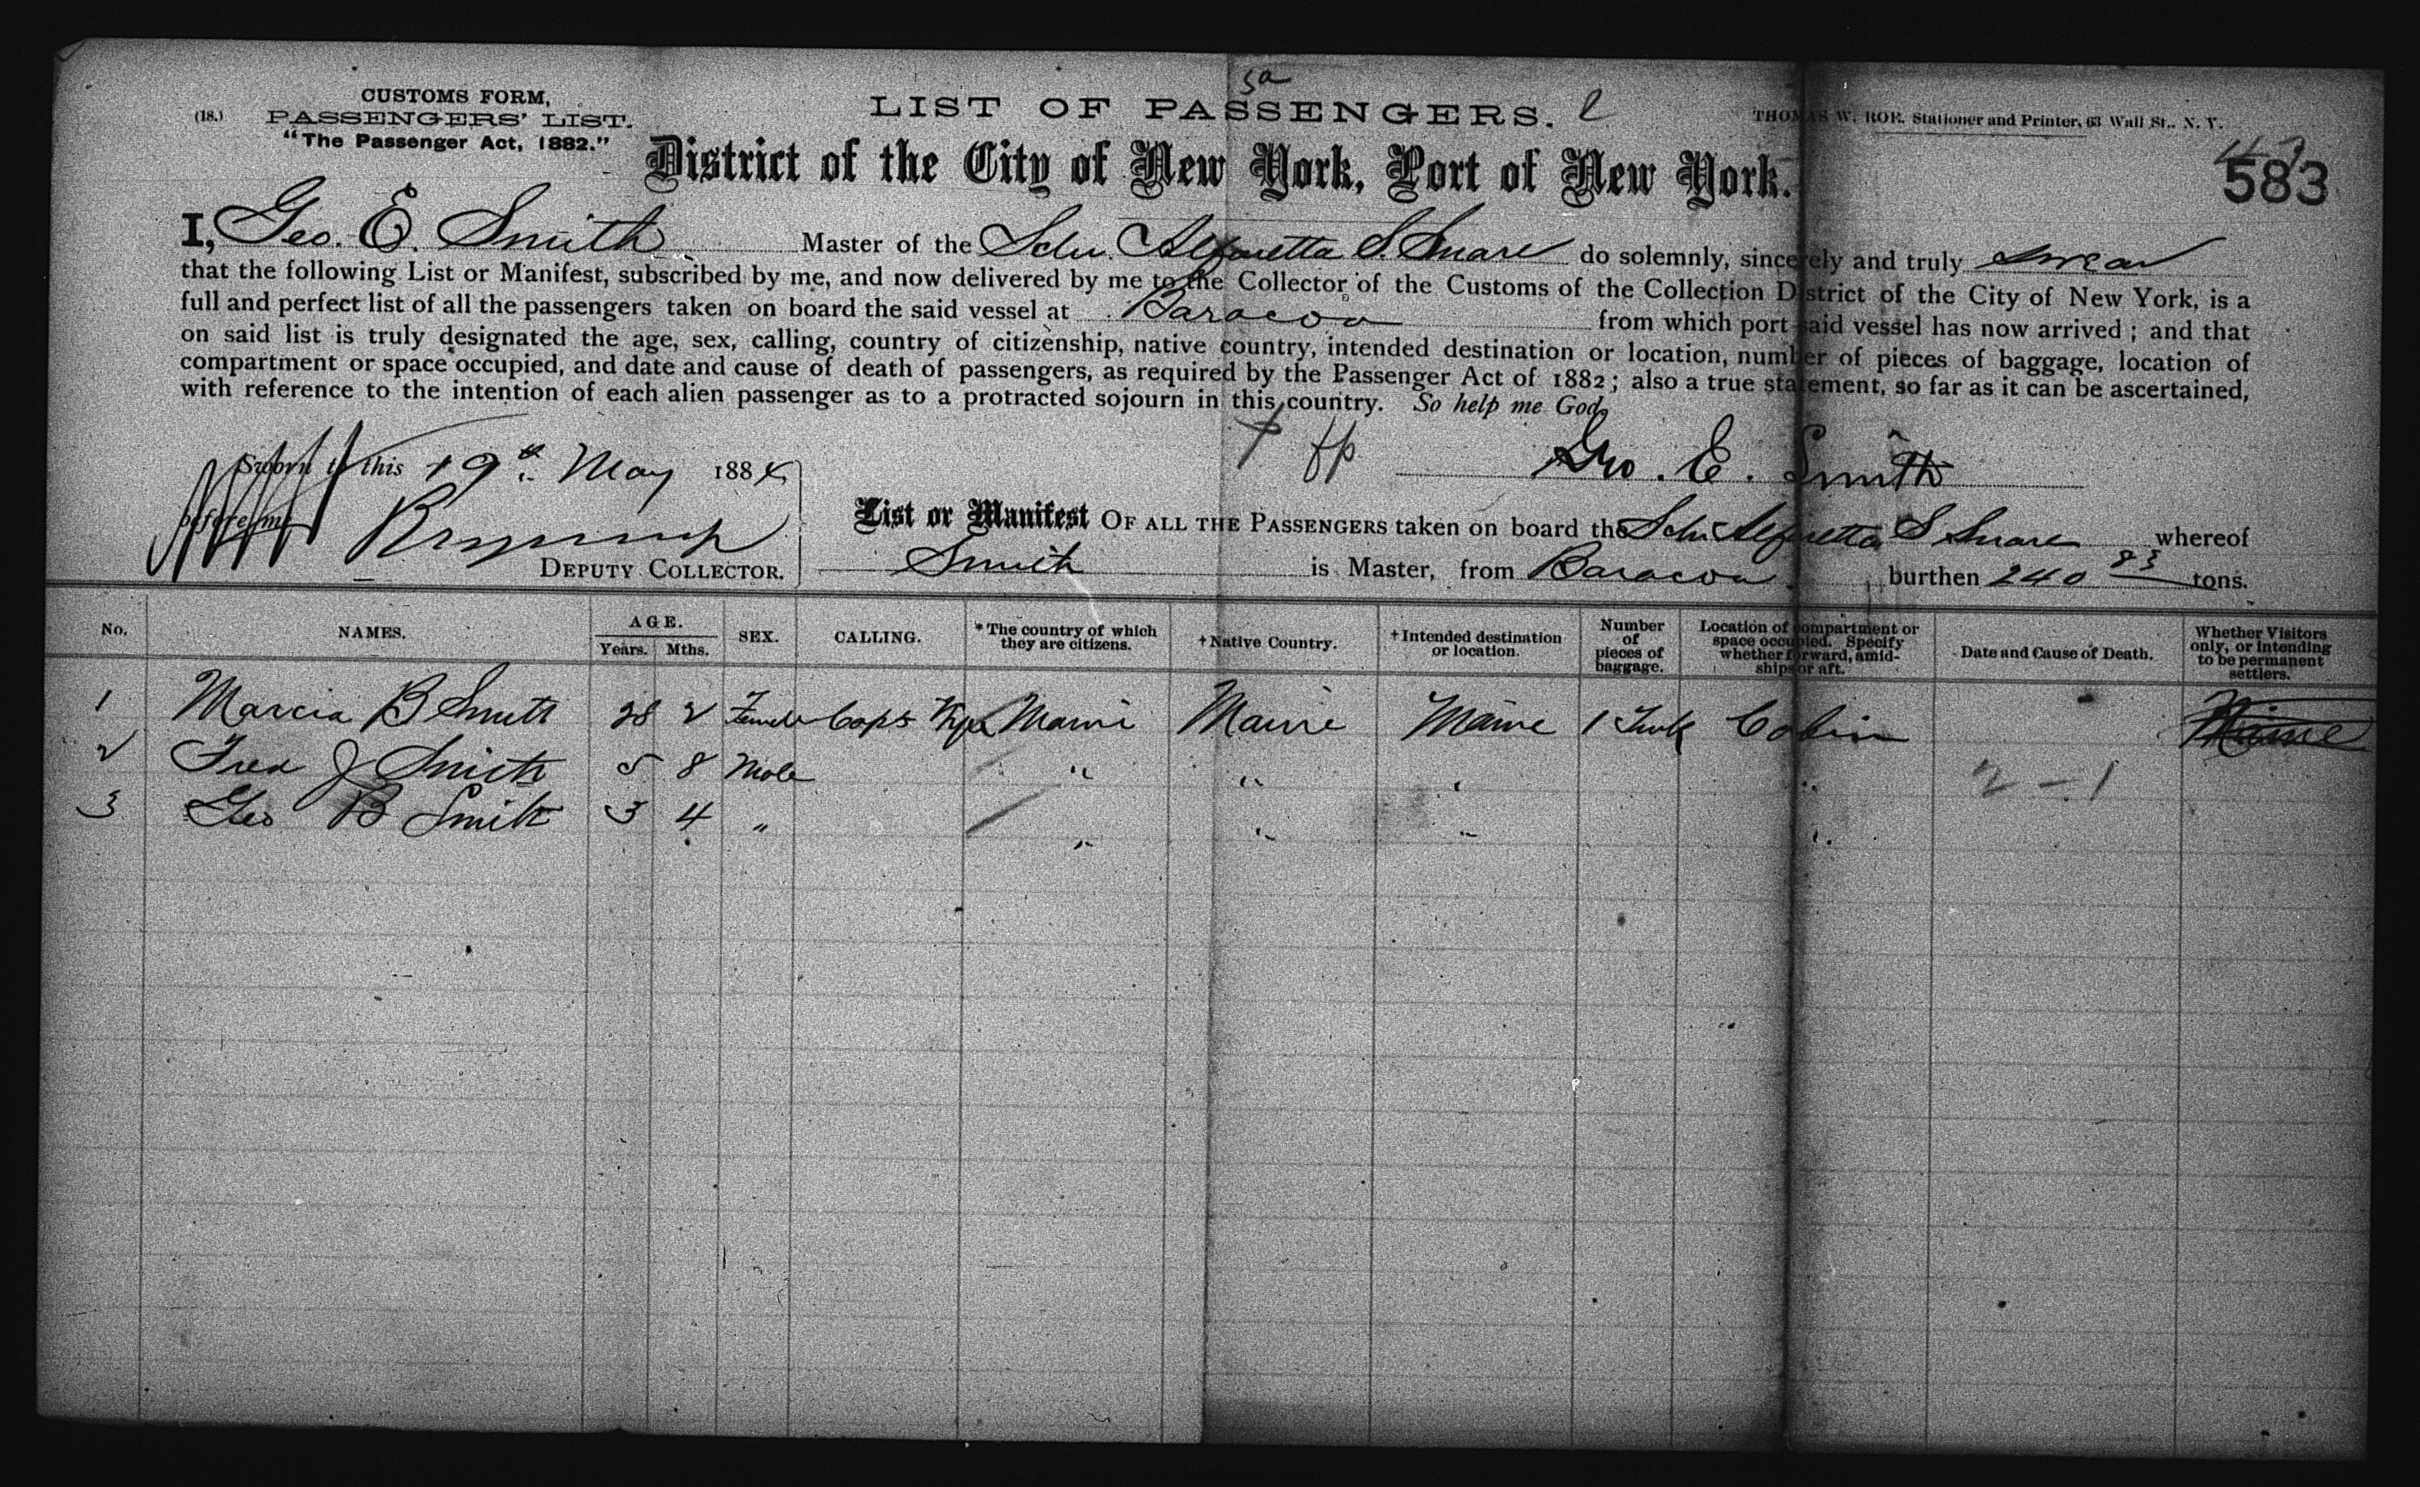 5a
CUSTOMS FORM,
(18.) PASSENGERS' LIST.
"The Passenger Act, 1882."
LIST OF PASSENGERS. l
THOMAS W. ROE, Stationer and Printer, 63 Wall St., N. Y.
District of the City of New York, Port of New York.
583
I, Geo. E. Smith Master of the Schr. Alfaretta S. Snare do solemnly, sincerely and truly swear
that the following List or Manifest, subscribed by me, and now delivered by me to the Collector of the Customs of the Collection District of the City of New York, is a
full and perfect list of all the passengers taken on board the said vessel at Baracoa from which port said vessel has now arrived; and that
on said list is truly designated the age, sex, calling, country of citizenship, native country, intended destination or location, number of pieces of baggage, location of
compartment or space occupied, and date and cause of death of passengers, as required by the Passenger Act of 1882; also a true statement, so far as it can be ascertained,
with reference to the intention of each alien passenger as to a protracted sojourn in this country. So help me God.
Sworn to this 19th May 1884
Geo. E. Smith
before me
DEPUTY COLLECTOR.
List or Manifest OF ALL THE PASSENGERS taken on board the Schr Alfaretta S Snare whereof
Smith is Master, from Baracoa burthen 240 83 tons.
No. NAMES. AGE. Years. Mths. SEX. CALLING. *The country of which they are citizens. †Native Country. †Intended destination or location. Number of pieces of baggage. Location of compartment or space occupied. Specify whether forward, amidships or aft. Date and Cause of Death. Whether Visitors only, or intending to be permanent settlers.
1 Marcia B Smith 28 2 Female Capts Wife Maine Maine Maine 1 Trunk Cabin Maine
2 Fred J Smith 5 8 Male " " " " 2 - 1
3 Geo B Smith 3 4 " " " " "